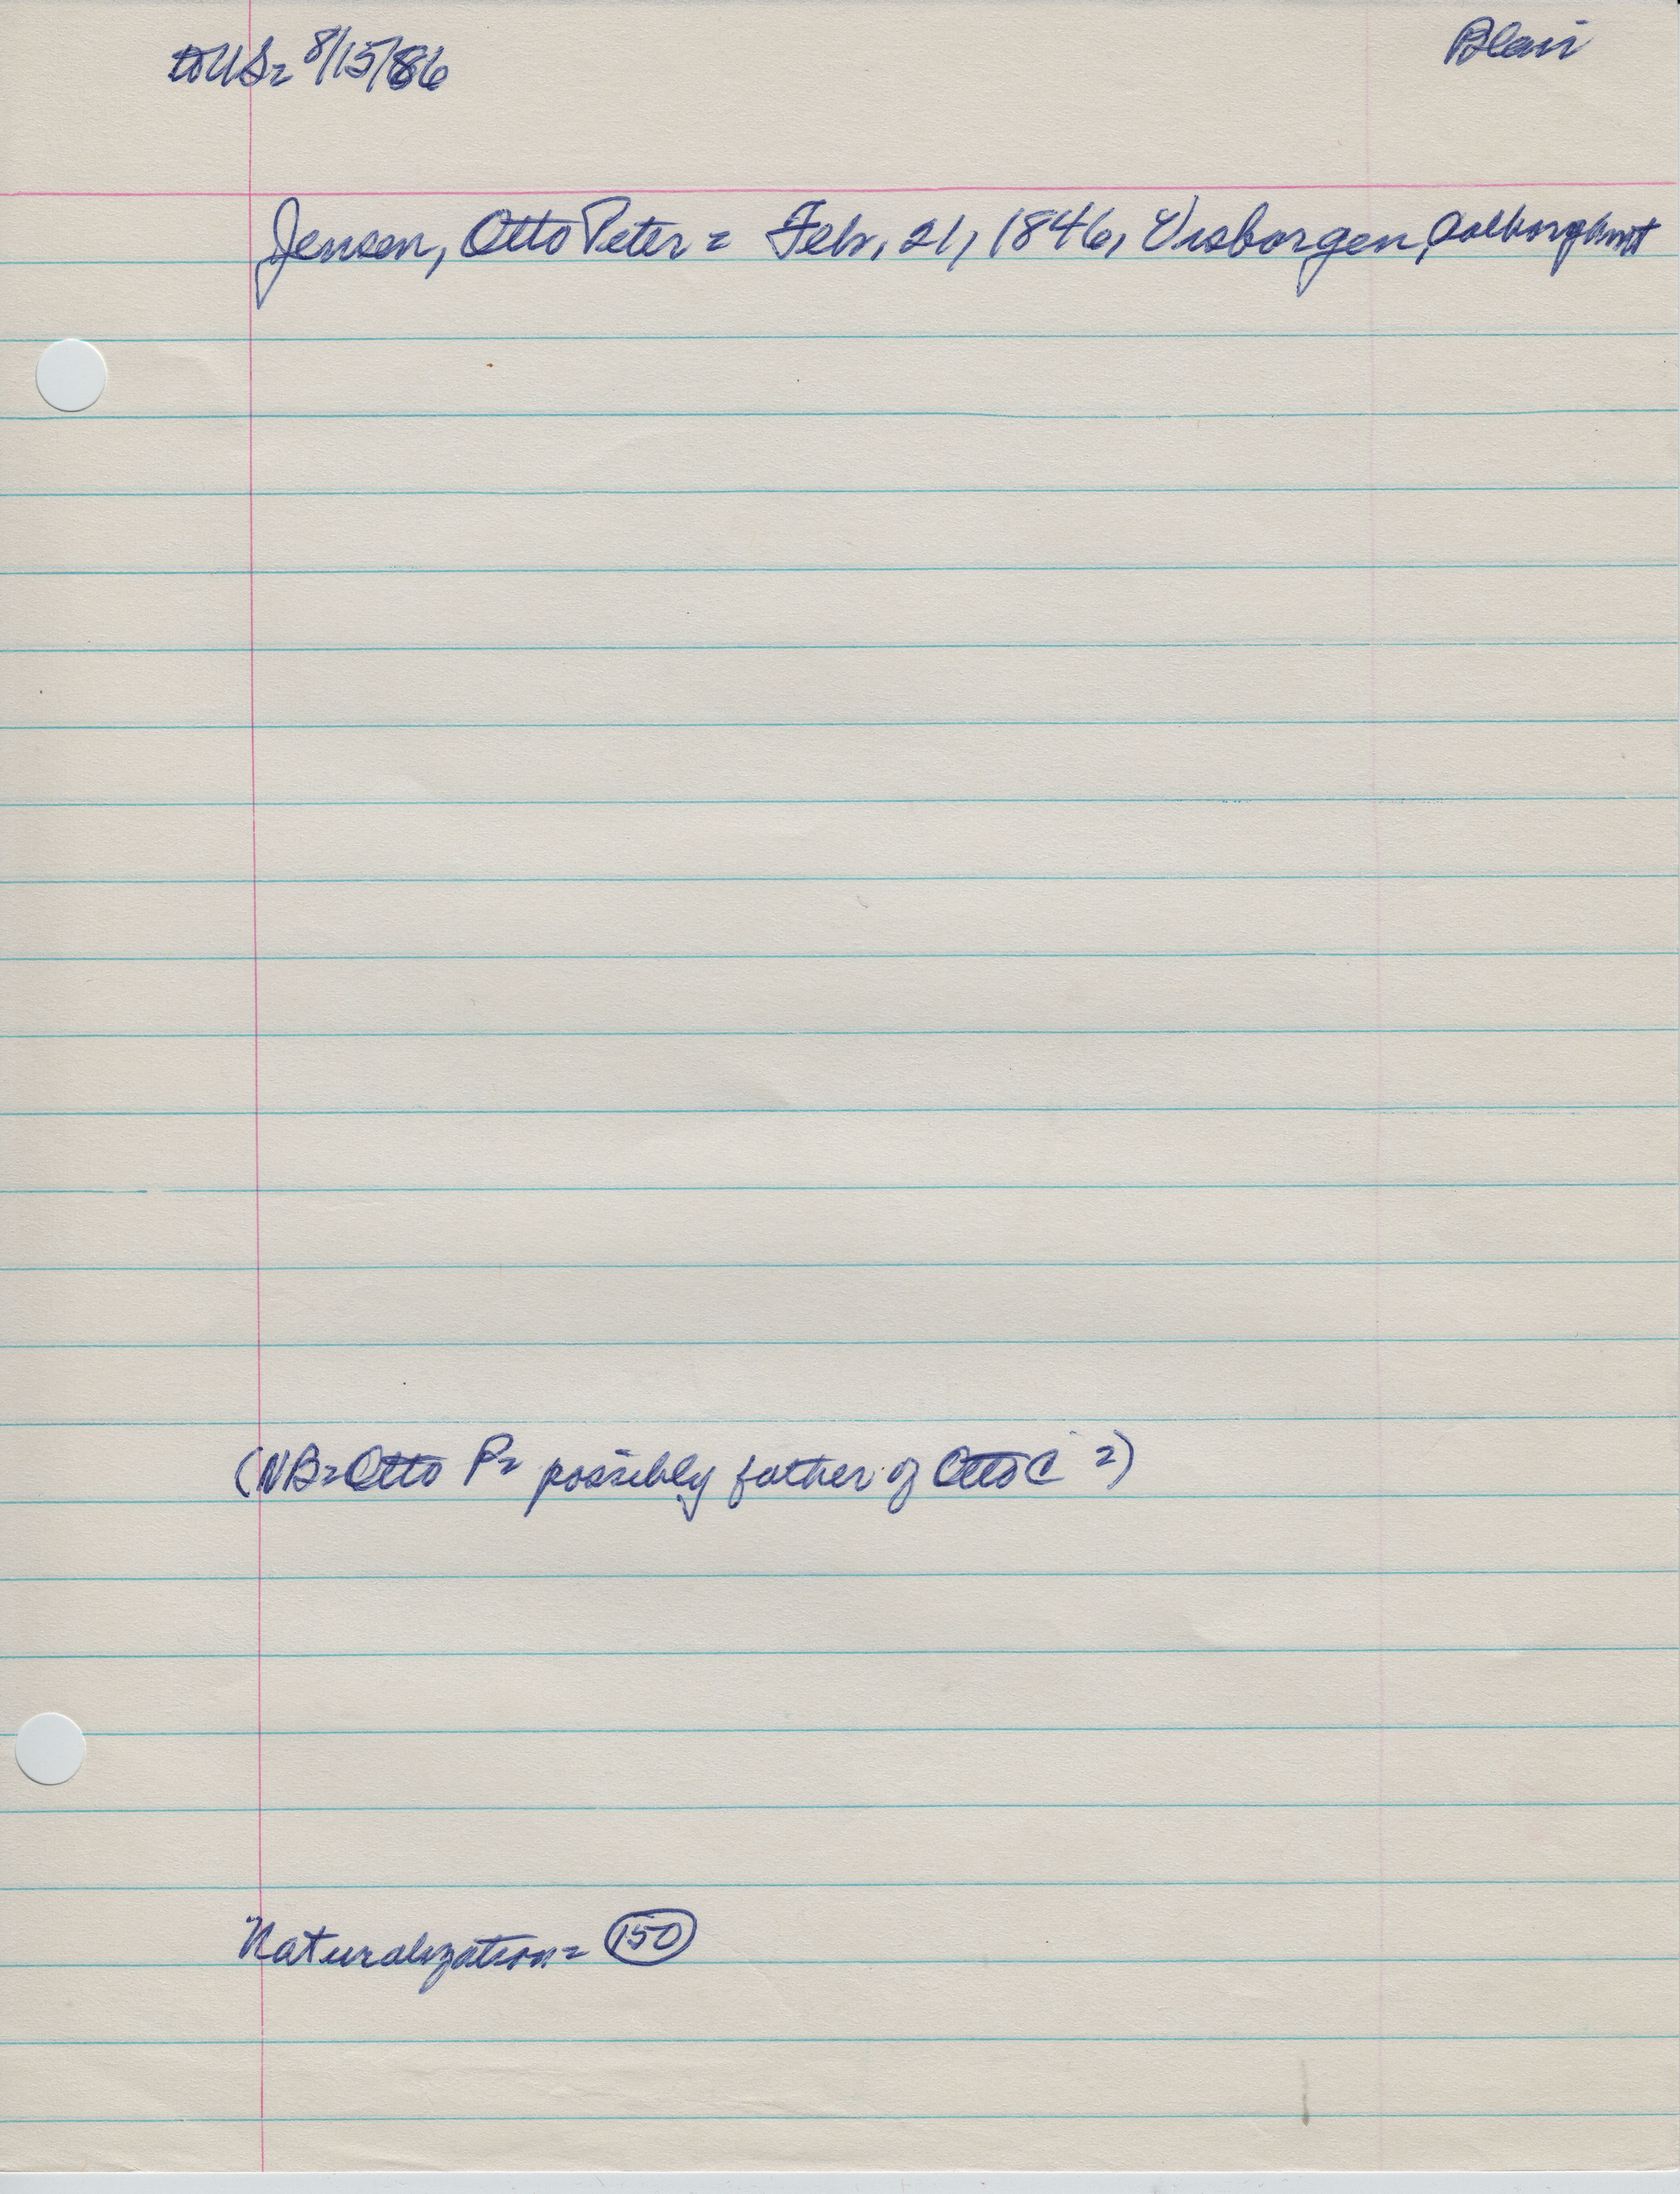 to US= 8/15/86
Blair
Jensen, Otto Peter = Feb. 21, 1846, Visborgen, Aalborg Amt
(NB= Otto P= possibly father of Otto C =)
Naturalization= 150